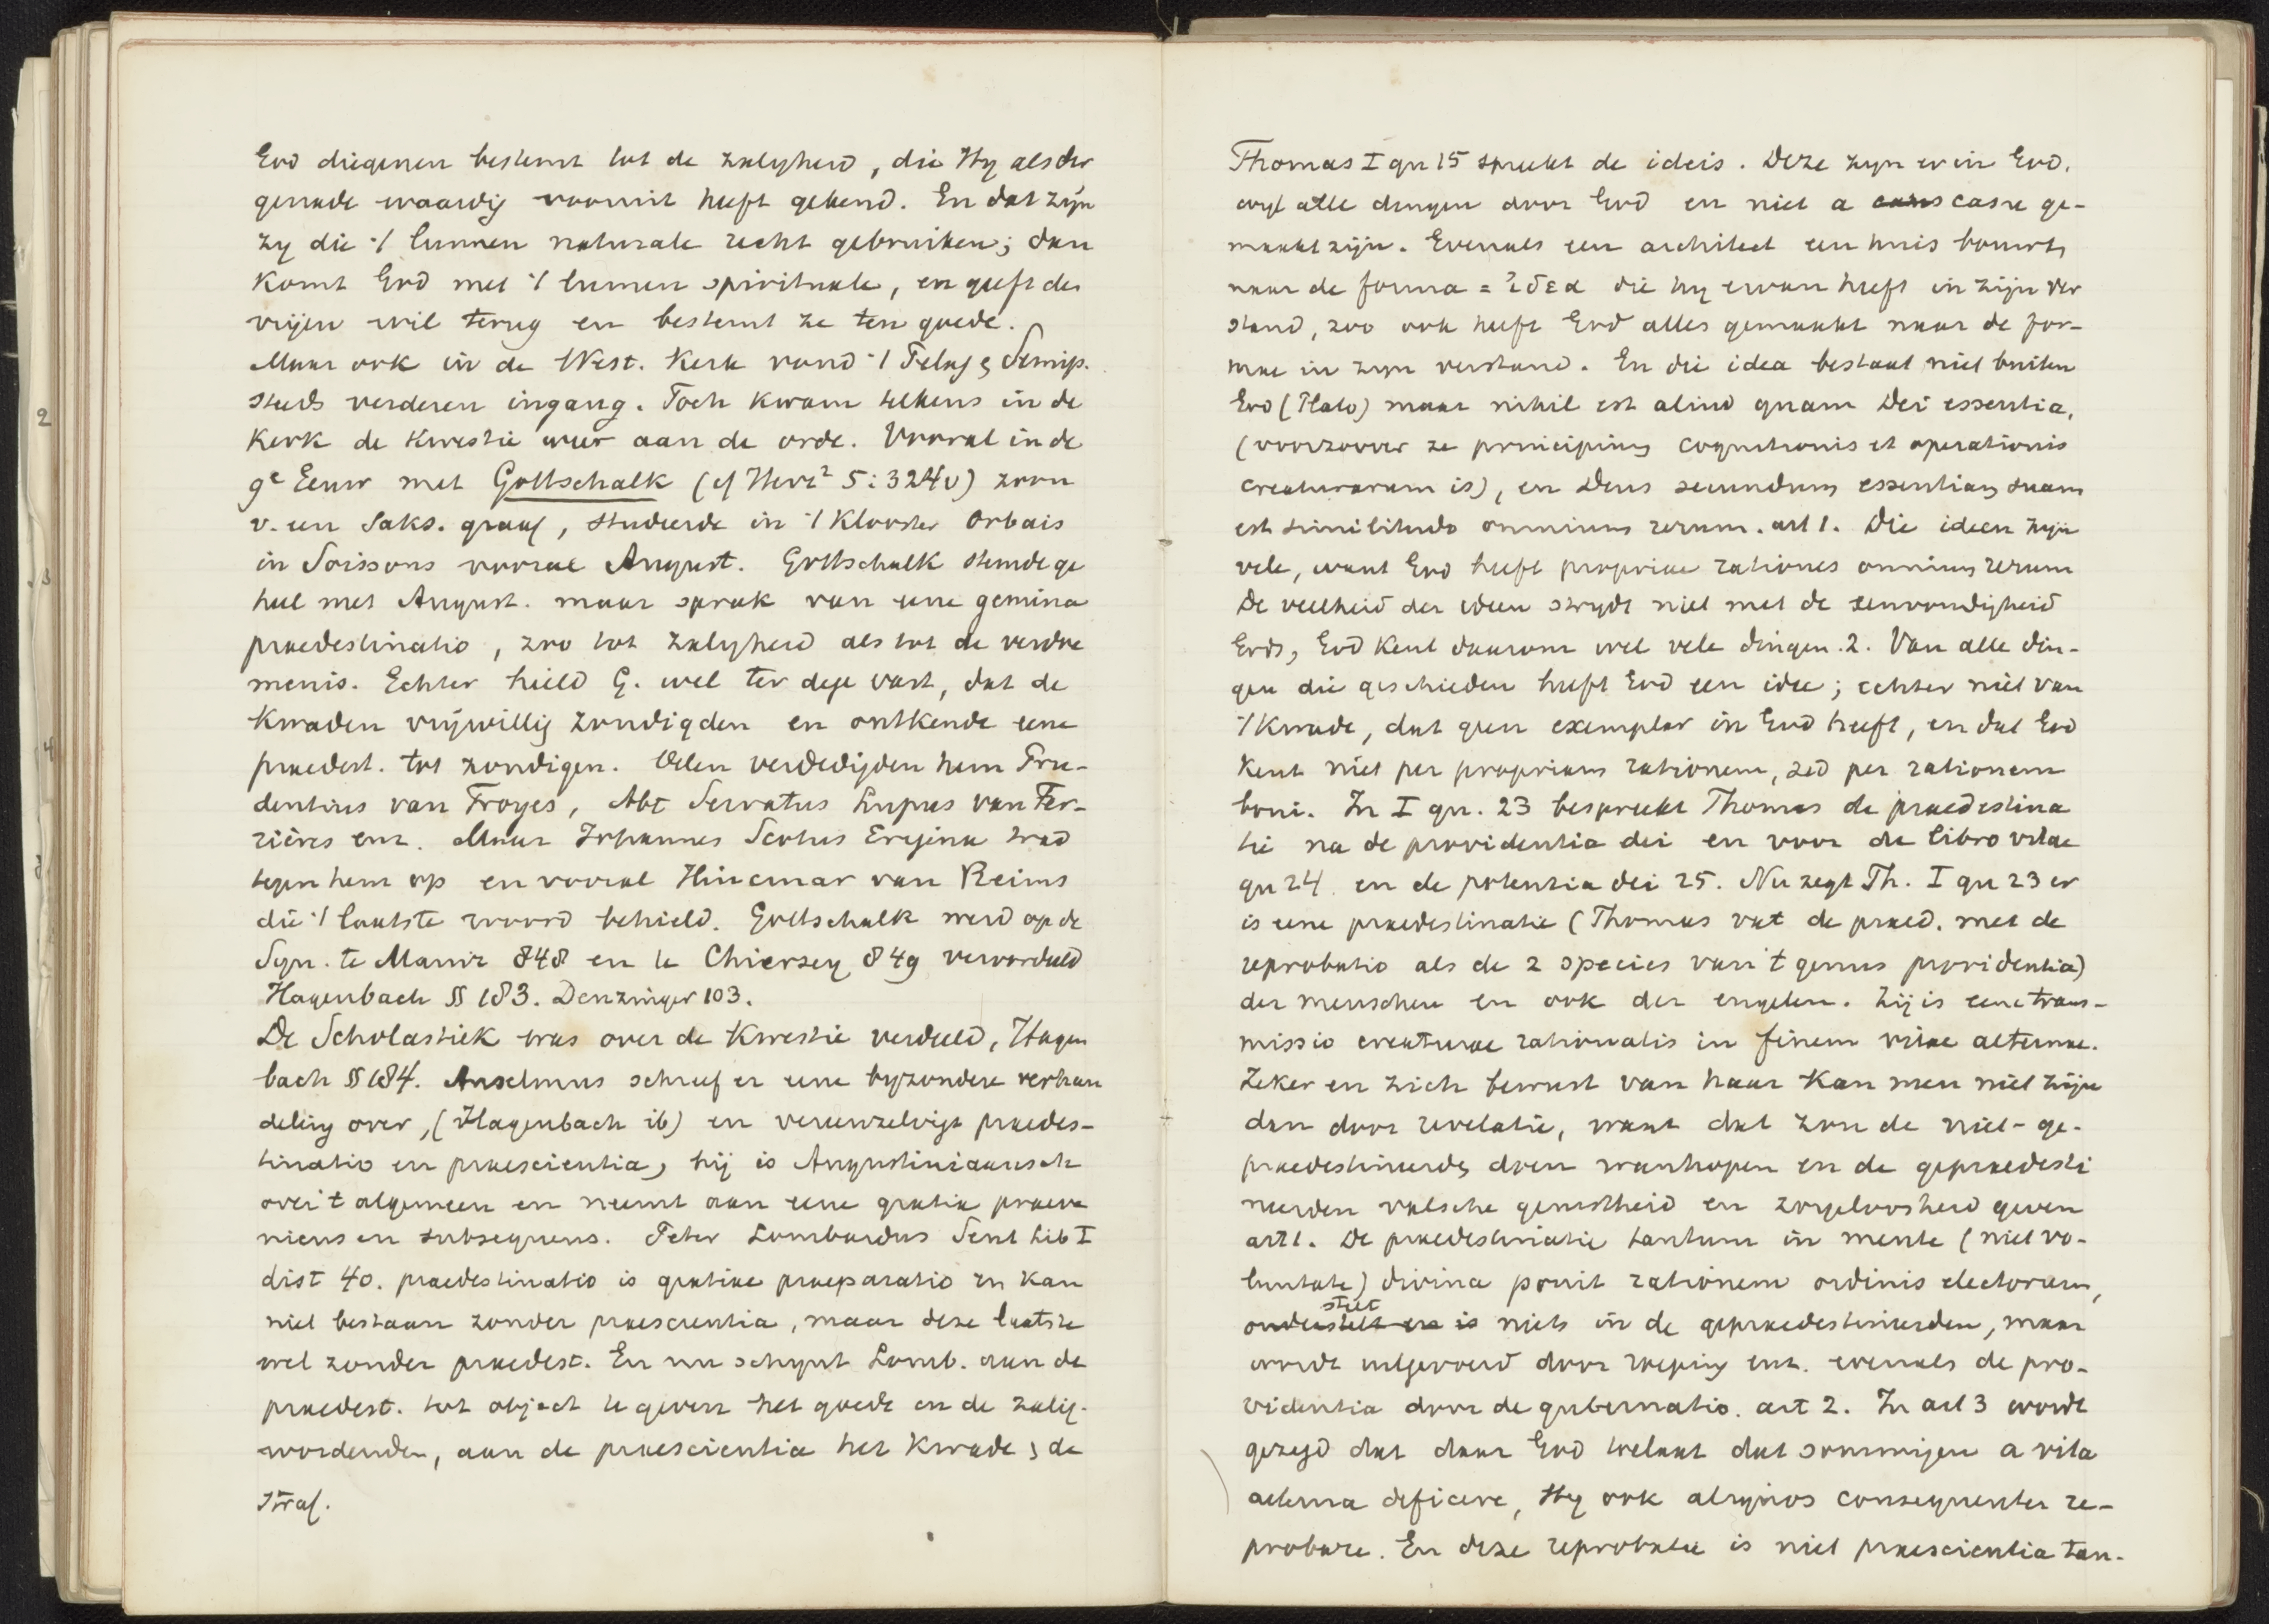 God diegenen bestemt tot de zalygheid, die Hy als der
genade waardig vooruit heeft gekend. En dat zijn
zy die 't lumen naturale recht gebruiken; dan
komt God met 't lumen spirituale, en geeft den
vrijen wil terug en bestemt ze ten goede.
Maar ook in de West. Kerk vond 't Pelag & Semip.
steeds verderen ingang. Toch kwam telkens in de
Kerk de Kwestie weer aan de orde. Vooral in de
9e Eeuw met Gottschalk (cf Herz² 5:324v) zoon
v. een Saks. graaf, studeerde in 't Klooster Orbais
in Soissons vooral August. Gottschalk stemde ge
heel met August. maar sprak van eene gemina
praedestinatio, zoo tot zalygheid als tot de verdoe
menis. Echter hield G. wel ter dege vast, dat de
Kwaden vrijwillig zondigden en ontkende eene
praedest. tot zondigen. Velen verdedigden hem Pru-
dentius van Troyes, Abt Servatus Lupus van Fer-
rières enz. Maar Johannes Scotus Erigena trad
tegen hem op en vooral Hincmar van Reims
die 't laatste woord behield. Gottschalk werd op de
Syn. te Mainz 848 en te Chiersey 849 veroordeeld
Hagenbach §§ 183. Denzinger 103.
De Scholastiek was over de Kwestie verdeeld, Hagen
bach §§ 184. Anselmus schreef er eene byzondere verhan
deling over, (Hagenbach ib) en vereenzelvigt praedes-
tinatio en praescientia, hij is Augustiniaansch
over 't algemeen en neemt aan eene gratia praeve
niens en subsequens. Peter Lombardus Sent Lib I
dist 40. praedestinatio is gratiae praeparatio en kan
niet bestaan zonder praescientia, maar deze laatste
wel zonder praedest. En nu schynt Lomb. aan de
praedest. tot object te geven het goede en de zalig-
wordenden, aan de praescientia het Kwade & de
straf.
Thomas I qu 15 spreekt de ideis. Deze zyn er in God,
wyl alle dingen door God en niet a casu casu ge-
maakt zijn. Evenals een architect een huis bouwt,
naar de forma = ἰδεα die hy ervan heeft in zijn ver
stand, zoo ook heeft God alles gemaakt naar de for-
mae in zyn verstand. En die idea bestaat niet buiten
God (Plato) maar nihil est aliud quam Dei essentia,
(voorzoover ze principium cognitionis et operationis
creaturarum is), en Deus secundum essentiam suam
est similitudo omnium rerum. art 1. Die ideen zijn
vele, want God heeft propriae rationes omnium rerum
De veelheid der ideen strydt niet met de eenvoudigheid
Gods, God kent daarom wel vele dingen. 2. Van alle din-
gen die geschieden heeft God een idee; echter niet van
't Kwade, dat geen exemplar in God heeft, en dat God
Kent niet per propriam rationem, sed per rationem
boni. In I qu. 23 bespreekt Thomas de praedestina
tie na de providentia dei en voor de libro vitae
qu 24 en de potentia dei 25. Nu zegt Th. I qu 23 er
is eene praedestinatie (Thomas vat de praed. met de
reprobatio als de 2 species van 't genus providentia)
der menschen en ook der engelen. Zij is eene trans-
missio creaturae rationalis in finem vitae aeternae.
Zeker en zich bewust van haar Kan men niet zijn
dan door revelatie, want dat zou de niet-ge-
praedestineerde doen wanhopen en de gepraedesti
neerden valsche gerustheid en zorgeloosheid geven
art 1. De praedestinatie tantum in mente (niet vo-
luntate) divina ponit rationem ordinis electorum,
stelt
onderstelt en is niets in de gepraedestineerden, maar
wordt uitgevoerd door roeping enz. evenals de pro-
videntia door de gubernatio. art 2. In art 3 wordt
gezegd dat daar God toelaat dat sommigen a vita
aeterna deficere, Hy ook aliquos consequenter re-
probare. En deze reprobatie is niet praescientia tan-